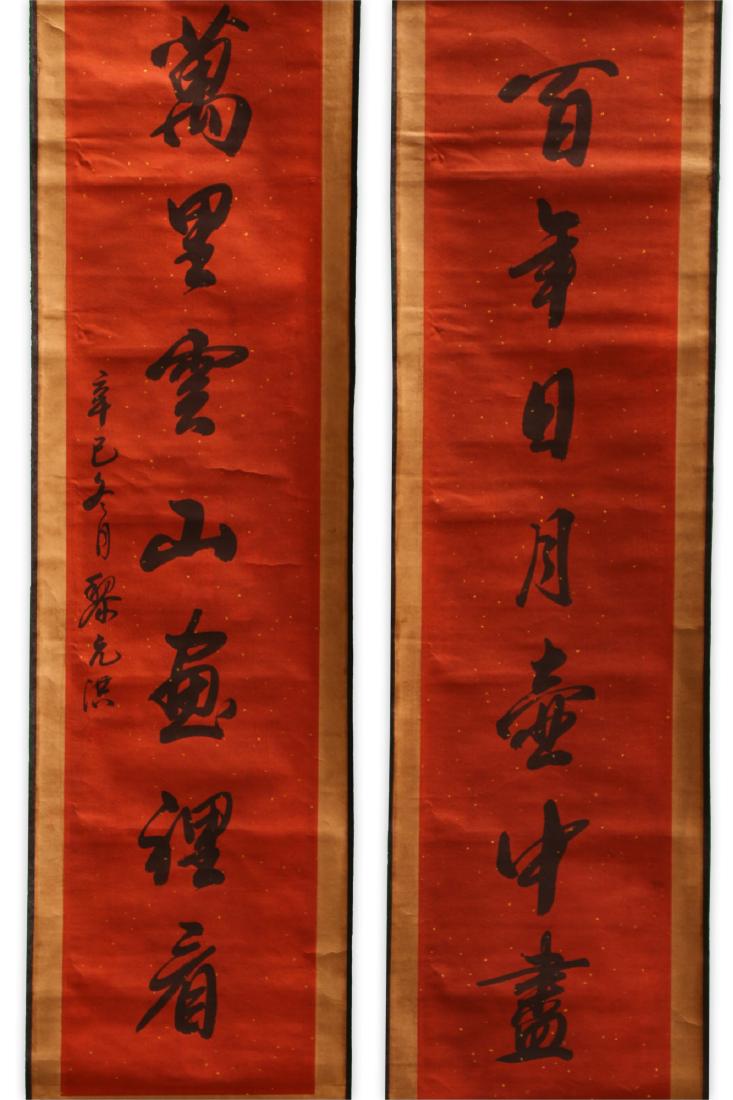 百年日月壺中盡
萬里雲山畫裡看
辛巳冬月黎元洪